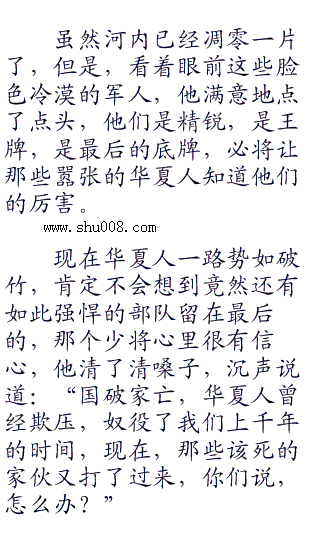 虽然河内已经凋零一片
了，但是，看着眼前这些脸
色冷漠的军人，他满意地点
了点头，他们是精锐，是王
牌，是最后的底牌，必将让
那些嚣张的华夏人知道他们
的厉害。
www.shu008.com
现在华夏人一路势如破
竹，肯定不会想到竟然还有
如此强悍的部队留在最后
的，那个少将心里很有信
心，他清了清嗓子，沉声说
道：“国破家亡，华夏人曾
经欺压，奴役了我们上千年
的时间，现在，那些该死的
家伙又打了过来，你们说，
怎么办？”